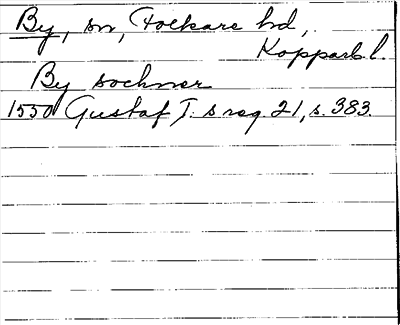 By, sn, Folkare hd,
Kopparb. l.
By sochner
1550 Gustaf I. s reg. 21, s. 383.